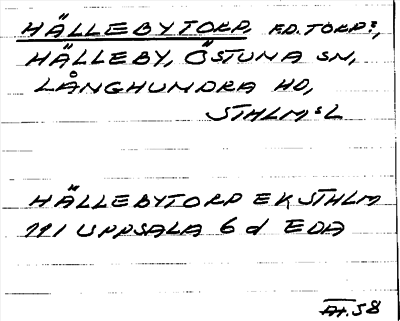 HÄLLEBYTORP, F.D. TORP:,
HÄLLEBY, ÖSTUNA SN,
LÅNGHUNDRA HD,
STHLM:L
HÄLLEBYTORP EK STHLM
111 UPPSALA 6 d EDA
At. 58